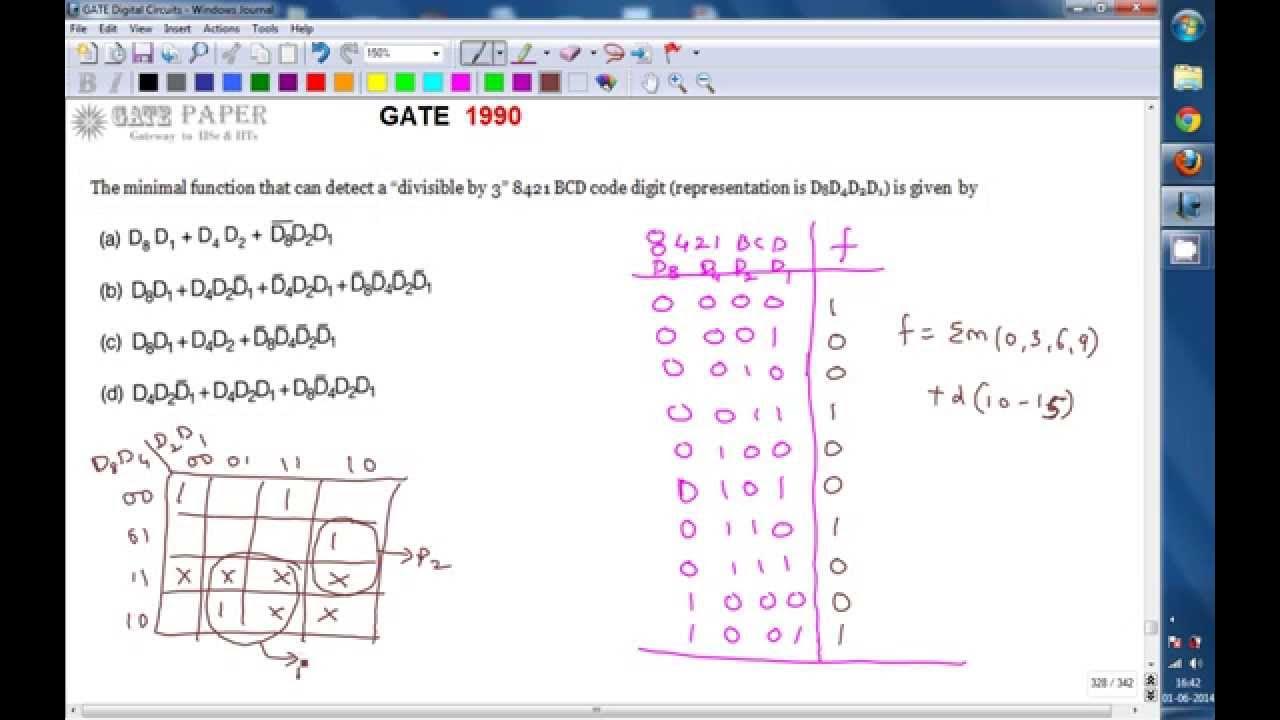 GATE Digital Circuits - Windows Journal
File Edit View Insert Actions Tools Help
150%
GATE PAPER
Gateway to IISc & IITs
GATE 1990
The minimal function that can detect a “divisible by 3” 8421 BCD code digit (representation is D₈D₄D₂D₁) is given by
(a) D₈D₁ + D₄D₂ + D̅₈D₂D₁
(b) D₈D₁ + D₄D₂D̅₁ + D̅₄D₂D₁ + D̅₈D̅₄D̅₂D̅₁
(c) D₈D₁ + D₄D₂ + D̅₈D̅₄D̅₂D̅₁
(d) D₄D₂D̅₁ + D₄D₂D₁ + D₈D̅₄D₂D₁
8421 BCD f
D₈ D₄ D₂ D₁
0 0 0 0 1
0 0 0 1 0
0 0 1 0 0
0 0 1 1 1
0 1 0 0 0
0 1 0 1 0
0 1 1 0 1
0 1 1 1 0
1 0 0 0 0
1 0 0 1 1
f = Σm(0,3,6,9)
+ d(10-15)
D₈D₄ D₂D₁
00 01 11 10
00 1 1
01 1
→ P₂
11 x x x x
10 1 x x
328 / 342
16:42
01-06-2014